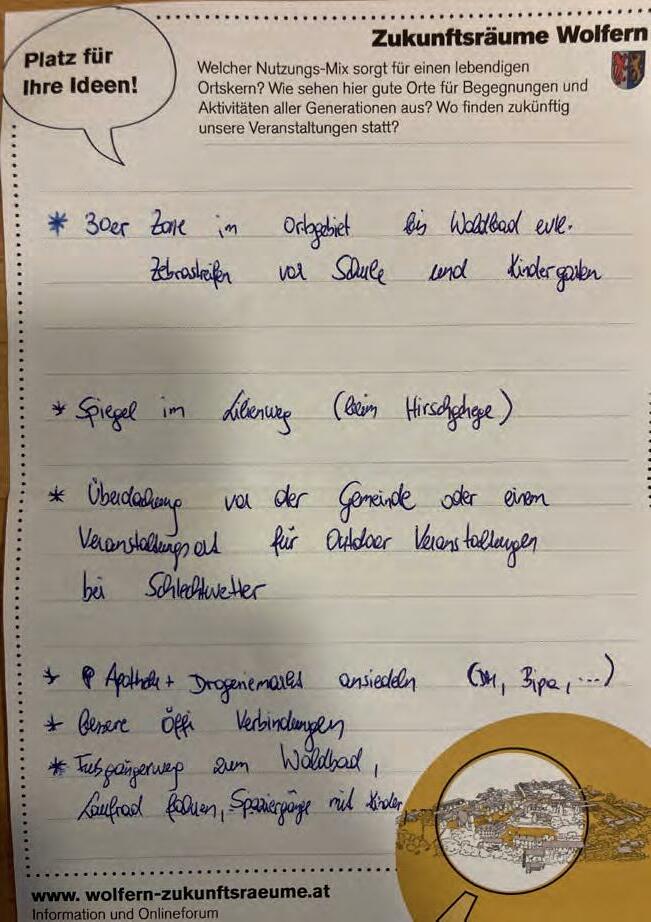 Platz für
Ihre Ideen!
Zukunftsräume Wolfern
Welcher Nutzungs-Mix sorgt für einen lebendigen
Ortskern? Wie sehen hier gute Orte für Begegnungen und
Aktivitäten aller Generationen aus? Wo finden zukünftig
unsere Veranstaltungen statt?
* 30er Zone im Ortsgebiet bis Waldbad evtl.
Zebrastreifen vor Schule und Kindergarten
* Spiegel im Lilienweg (beim Hirschgehege)
* Überdachung vor der Gemeinde oder einem
Veranstaltungsort für Outdoor Veranstaltungen
bei Schlechtwetter
* Apotheke + Drogeriemarkt ansiedeln (DM, Bipa, ...)
* Bessere Öffi Verbindungen
* Fußgängerweg zum Waldbad,
Laufrad fahren, Spaziergänge mit Kinder
www. wolfern-zukunftsraeume.at
Information und Onlineforum